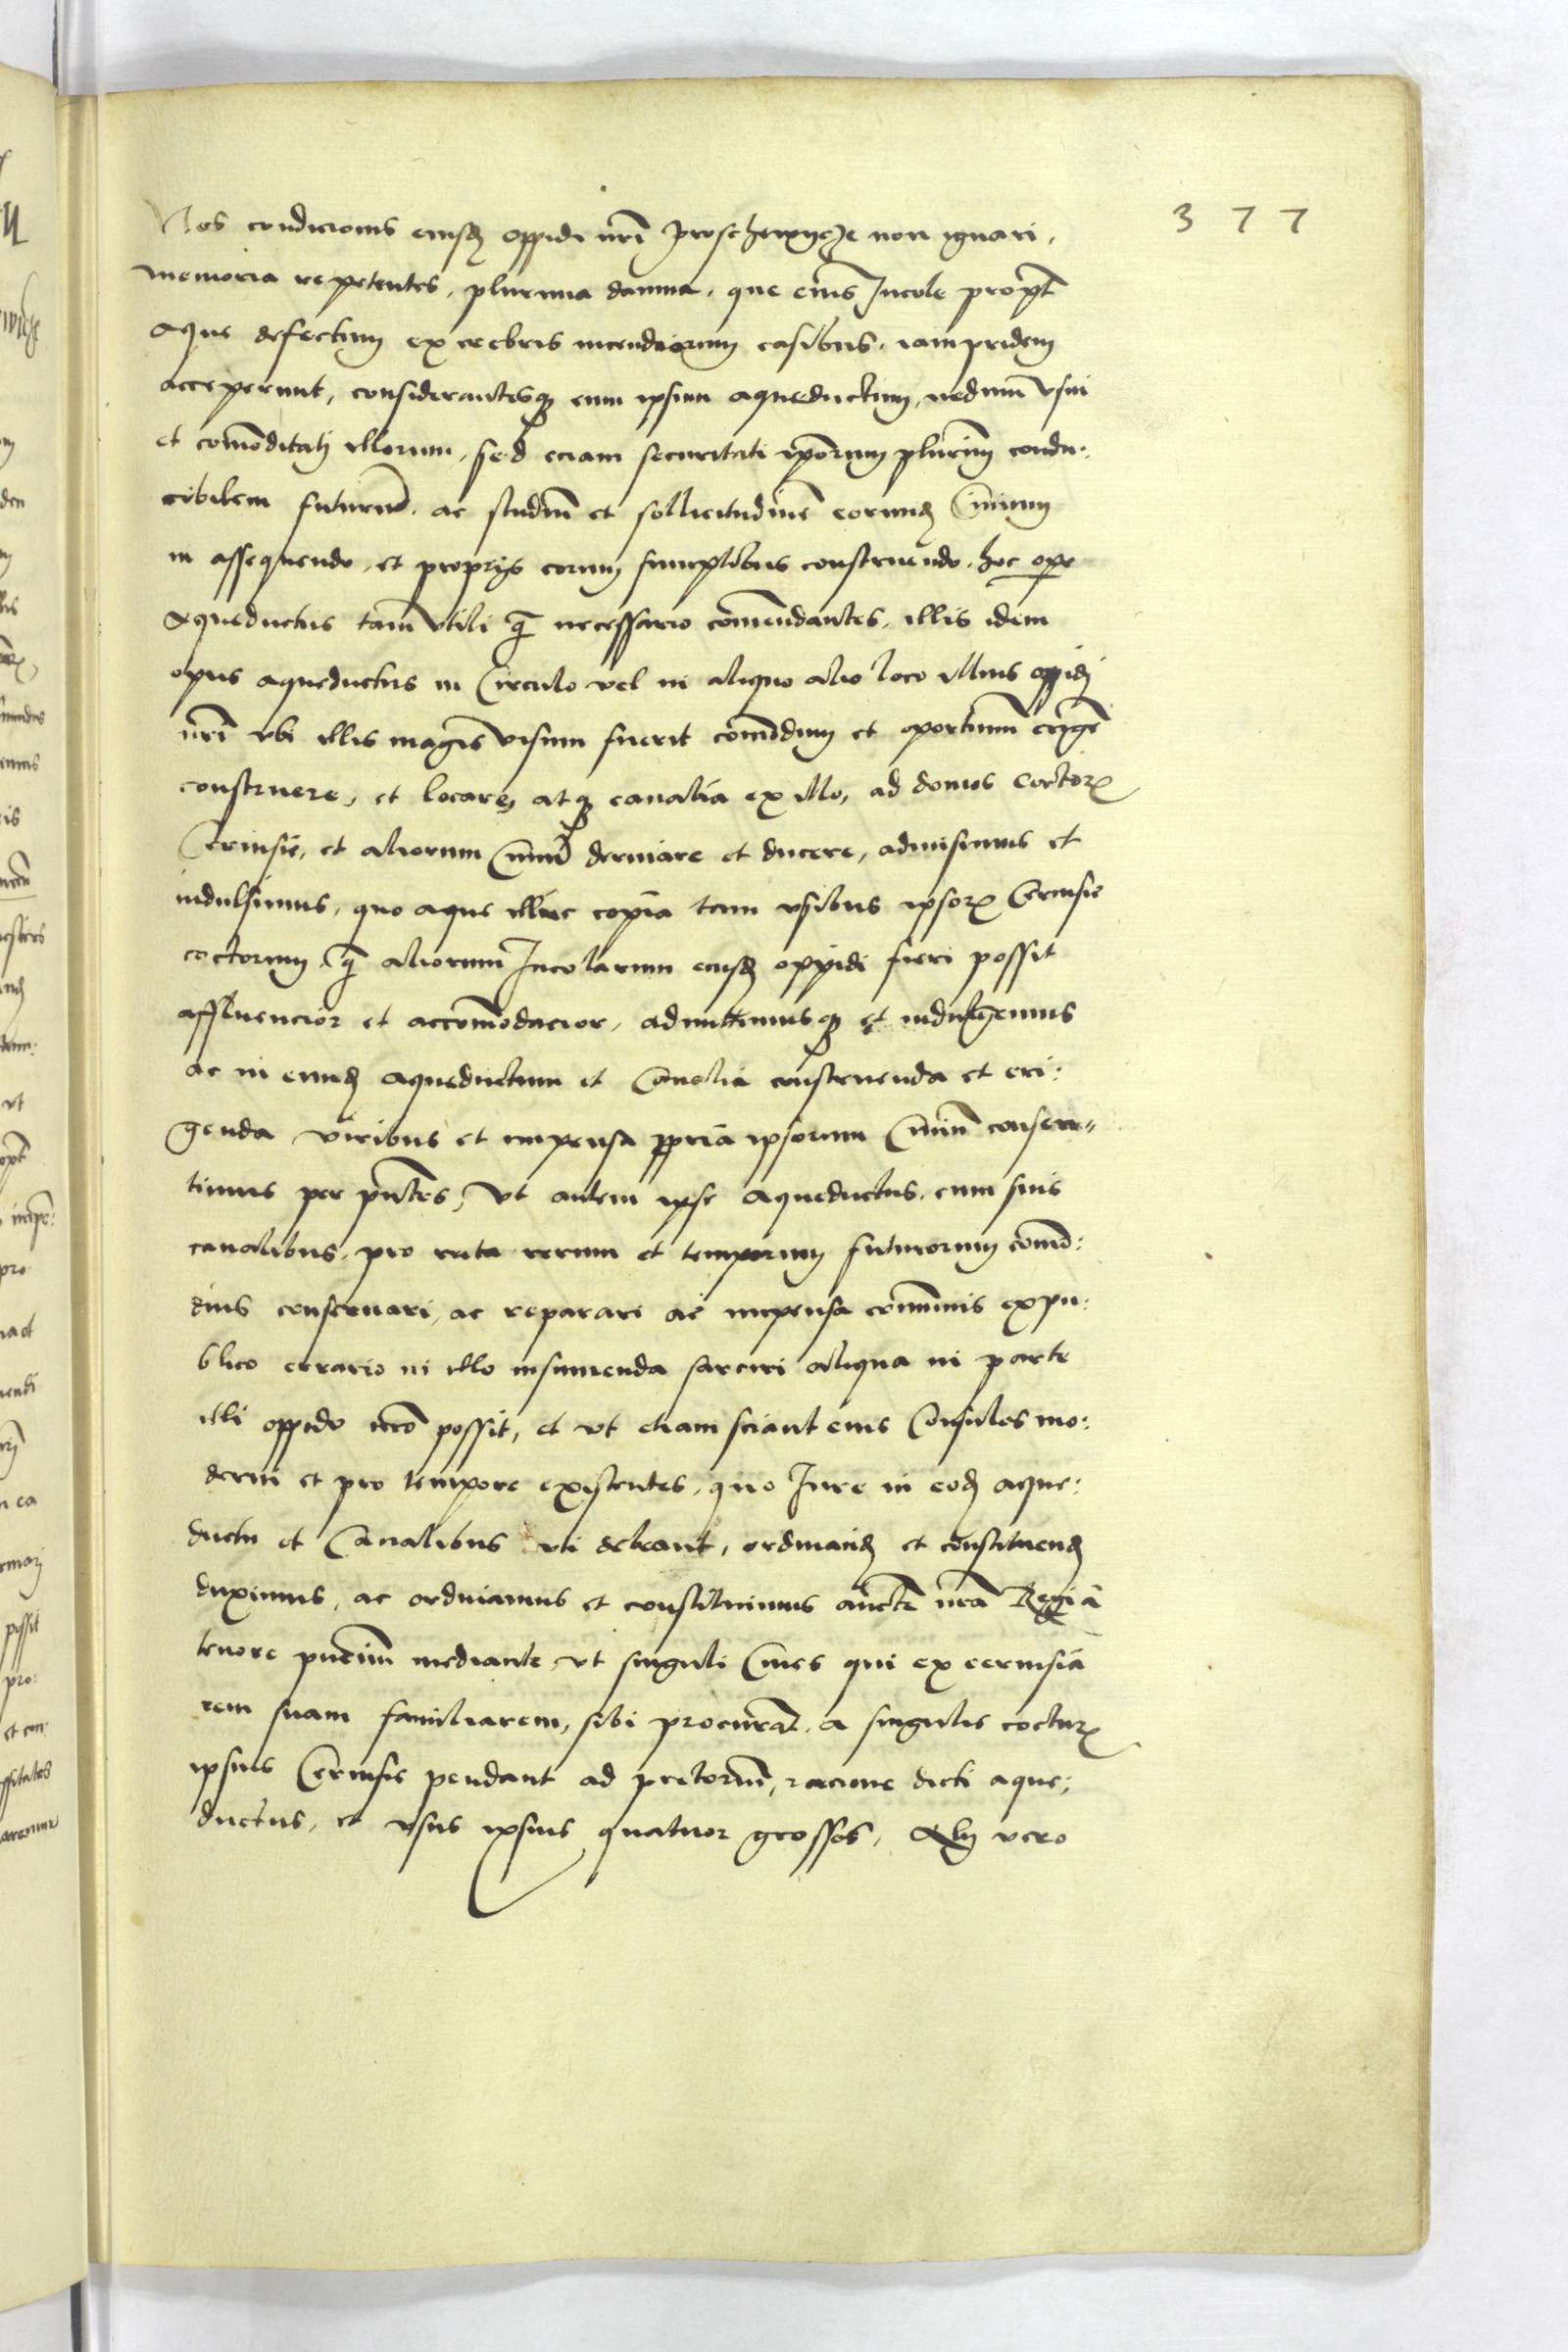 377
Nos condicionis eiusd oppidi nri Proschewycze non ignari,
memoria repetentes, plurima damna, que eius Incole propt
aque defectum ex crebris incendiorum casibus, iampridem
acceperunt, considerantesq eum ipsum aqueductum, nedum vsui
et comoditati illorum, sed eciam securitati iporum plurim condu:
cibilem futurum, ac studium et sollicitudine eorund Civium
in assequendo, et propriis eorum sumptibus construendo, hoc ope
Aqueductus tam vtili q necessario comendantes, illis idem
opus aqueductus in Circulo vel in aliquo alio loco illius oppidi
nri vbi illis magis visum fuerit comodum et oportunum erige
construere, et locare, atq canalia ex illo, ad domos coctor
Cervisie, et aliorum Civium derivare et ducere, admisimus et
indulsimus, quo aque illuc copia tam vsibus ipsor Cervisie
coctorum, q aliorum Incolarum eiusd oppidi fieri possit
affluencior et accomodacior, admittimusq et indulgemus
ac in eund aqueductum et Canalia construenda et eri:
genda viribus et impensa ppria ipsorum Civium consen-
timus per pntes, Vt autem ipse Aqueductus, cum suis
canalibus, pro rata rerum et temporum futurorum como:
dius conservari, ac reparari ac impensa communis ex pu:
blico errario in illo insumenda sarciri aliqua in parte
illi oppido possit, et vt etiam sciant eius Consules mo:
derni et pro tempore existentes, quo Iure in eod aque:
ductu et Canalibus vti debeant, ordinand et constituend
duximus, ac ordinamus et constituimus aucte nra Regia
tenore pncium mediante, vt singuli Cives qui ex cervisia
rem suam familiarem, sibi procurat, a singulis coctur
ipsius Cervisie pendant ad pretorium, racione dicti aque:
ductus, et vsus ipsius quatuor grossos, Alii vero